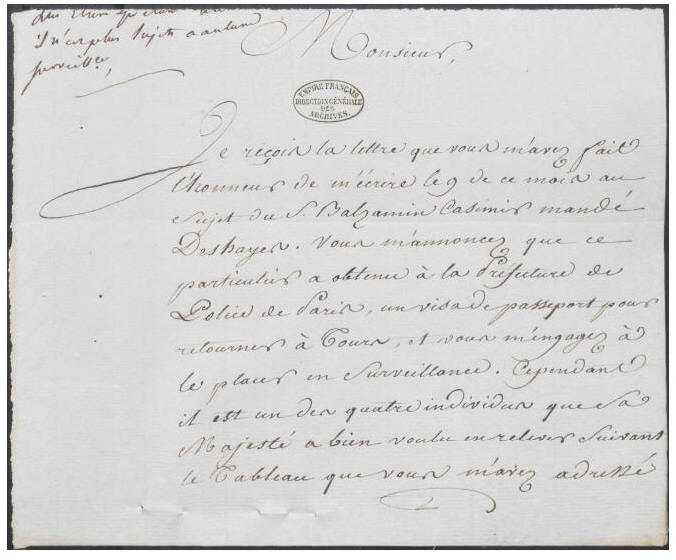 il n'est plus sujet a aucune
surveill.ce
Monsieur,
EMPIRE FRANÇAIS
DIRECTION GÉNÉRALE
DES
ARCHIVES.
Je reçois la lettre que vous m'avez fait
l'honneur de m'écrire le 9 de ce mois au
sujet du S. Balzamin Casimir mandé
Deshayes. Vous m'annoncez que ce
particulier a obtenu à la Préfecture de
Police de Paris, un visa de passeport pour
retourner à Tours, et vous m'engagez à
le placer en surveillance. Cependant
il est un des quatre individus que Sa
Majesté a bien voulu en relever suivant
le Tableau que vous m'avez adressé